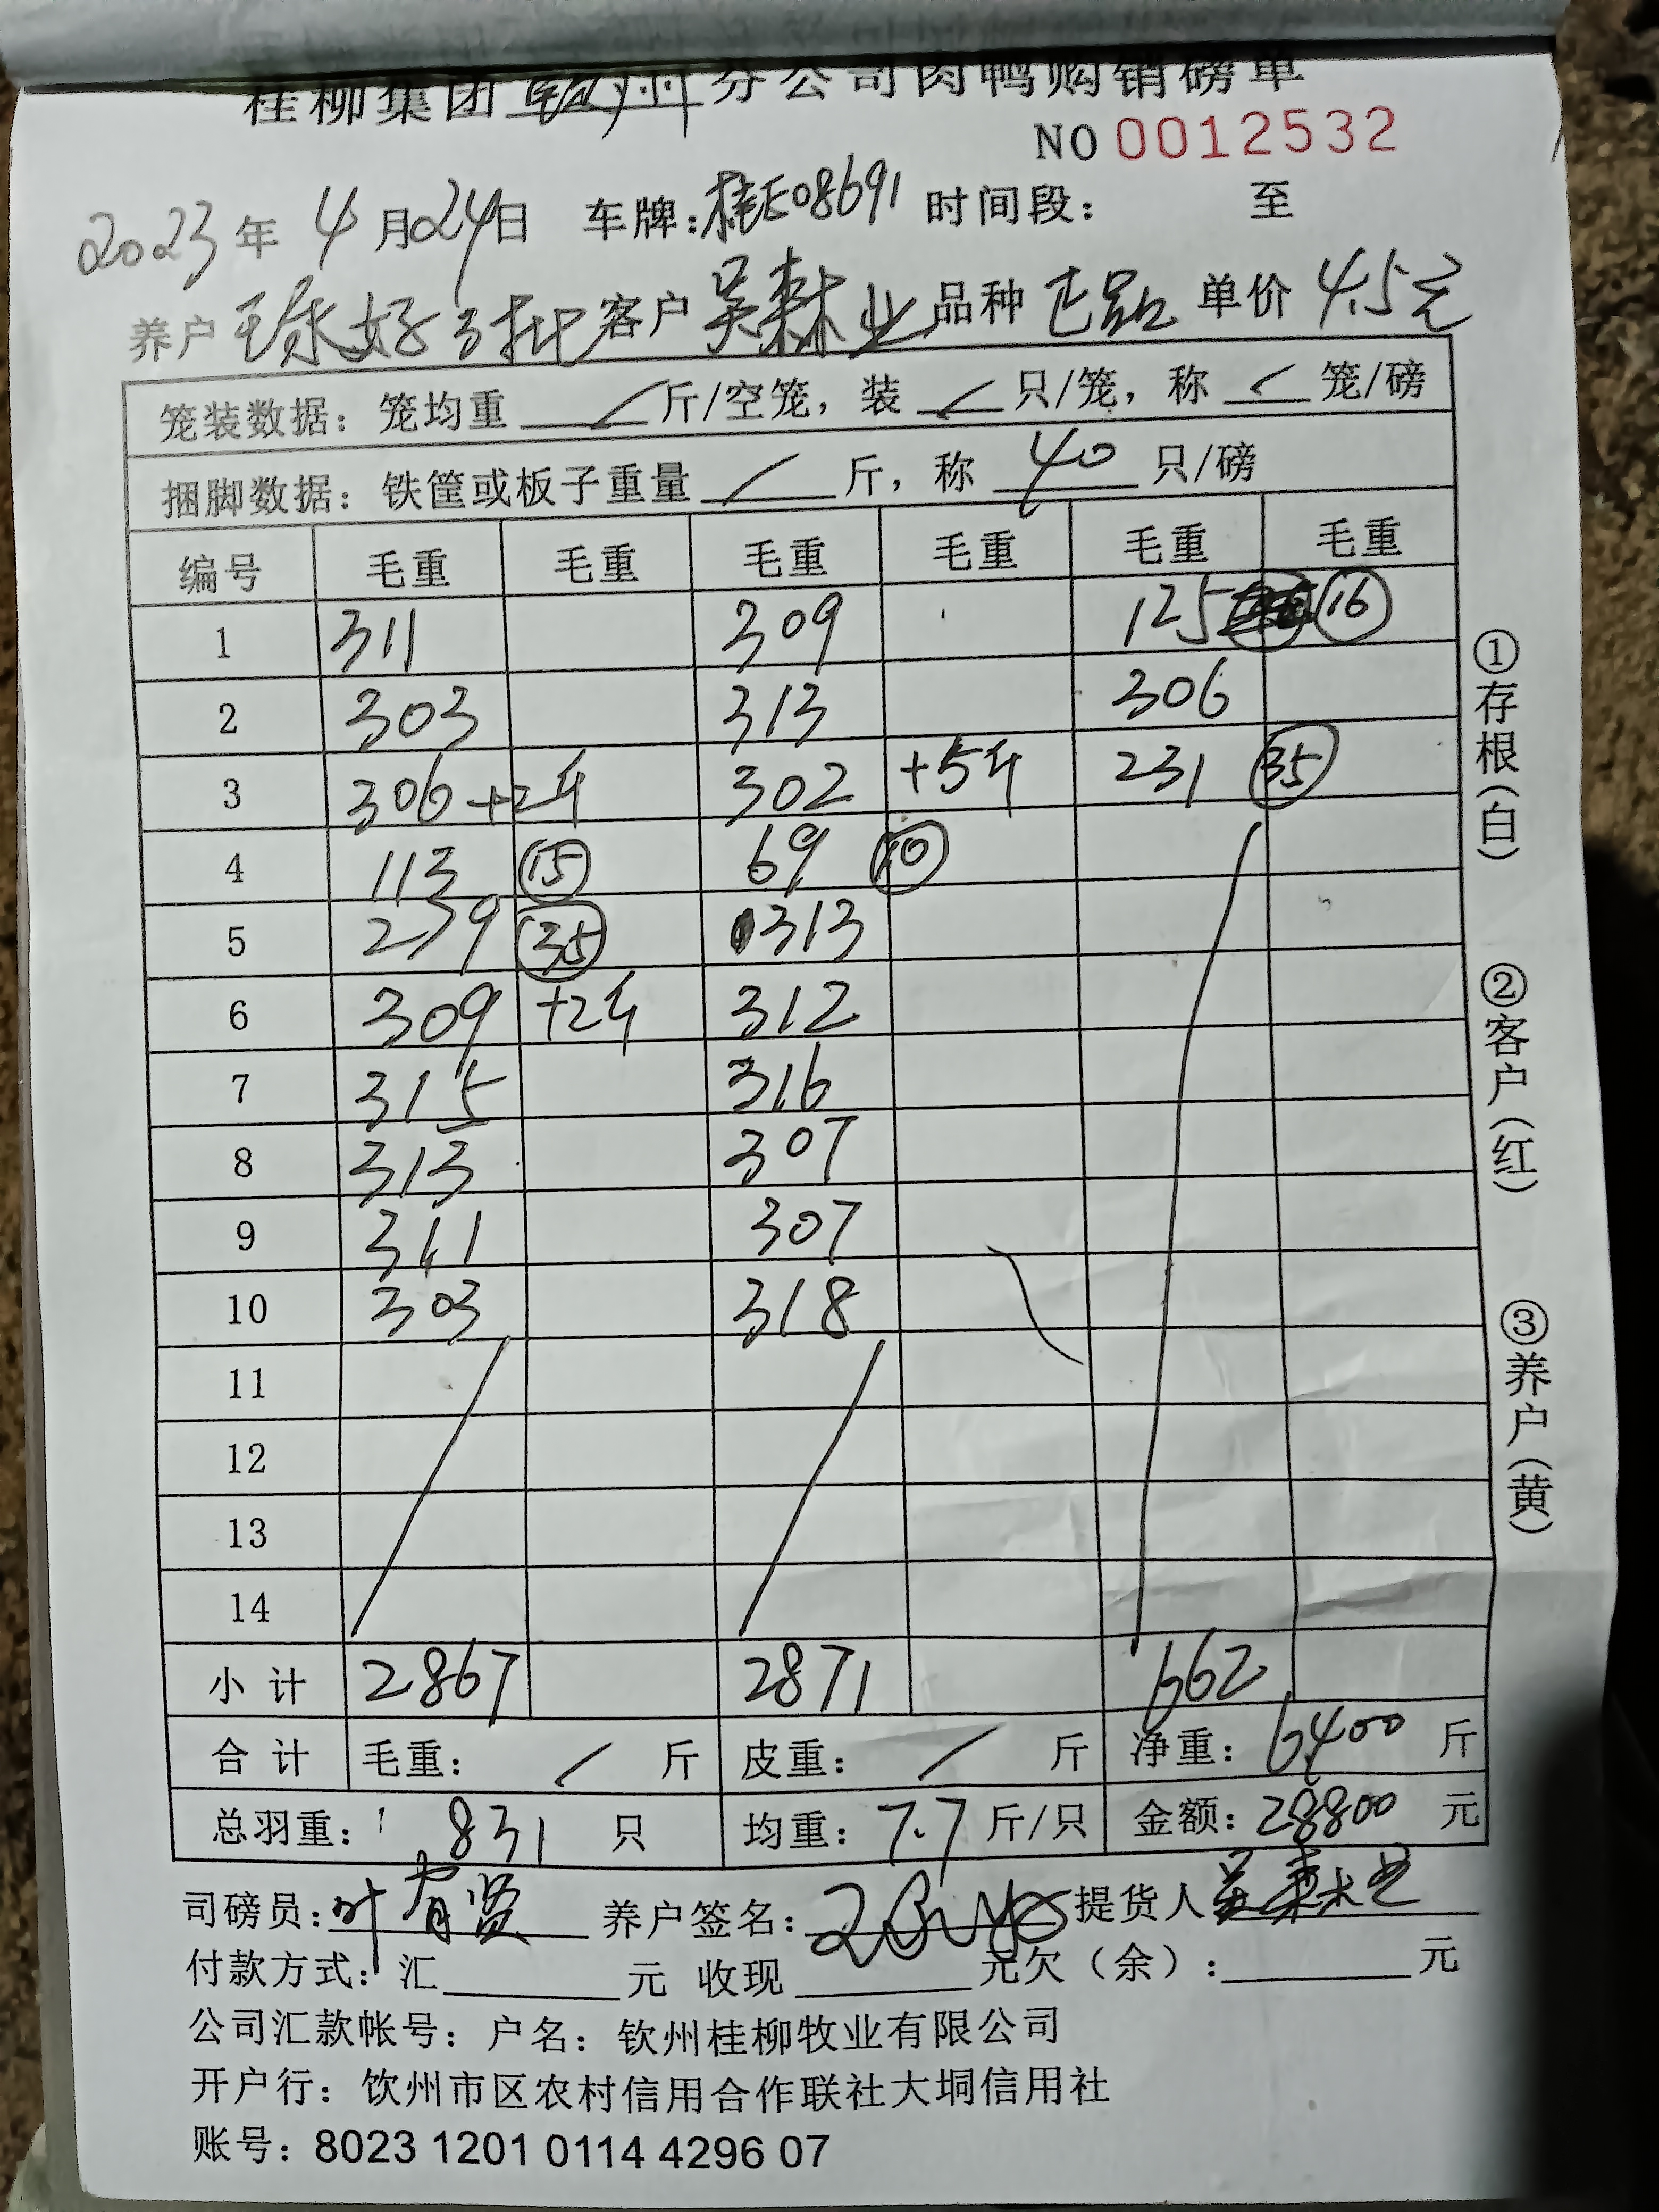 桂柳集团钦州分公司肉鸭购销磅单
NO 0012532
2023年 4月24日 车牌:桂E08691 时间段: 至
养户 客户 吴森业 品种 正品 单价 4.5元
笼装数据: 笼均重 / 斤/空笼, 装 / 只/笼, 称 / 笼/磅
捆脚数据: 铁筐或板子重量 / 斤, 称 40 只/磅
编号 毛重 毛重 毛重 毛重 毛重 毛重
1 311 309 125 16
2 303 313 306
3 306 +2斤 302 +5斤 231 35
4 113 15 69 10
5 279 35 313
6 309 +2斤 312
7 315 316
8 313 307
9 311 307
10 303 318
11
12
13
14
小计 2867 2871 662
合计 毛重: / 斤 皮重: / 斤 净重: 6400 斤
总羽重: 831 只 均重: 7.7 斤/只 金额: 28800 元
司磅员: 叶有贤 养户签名: 提货人 吴森业
付款方式: 汇 元 收现 元欠(余): 元
公司汇款帐号: 户名: 钦州桂柳牧业有限公司
开户行: 钦州市区农村信用合作联社大垌信用社
账号: 8023 1201 0114 4296 07
①存根(白)
②客户(红)
③养户(黄)